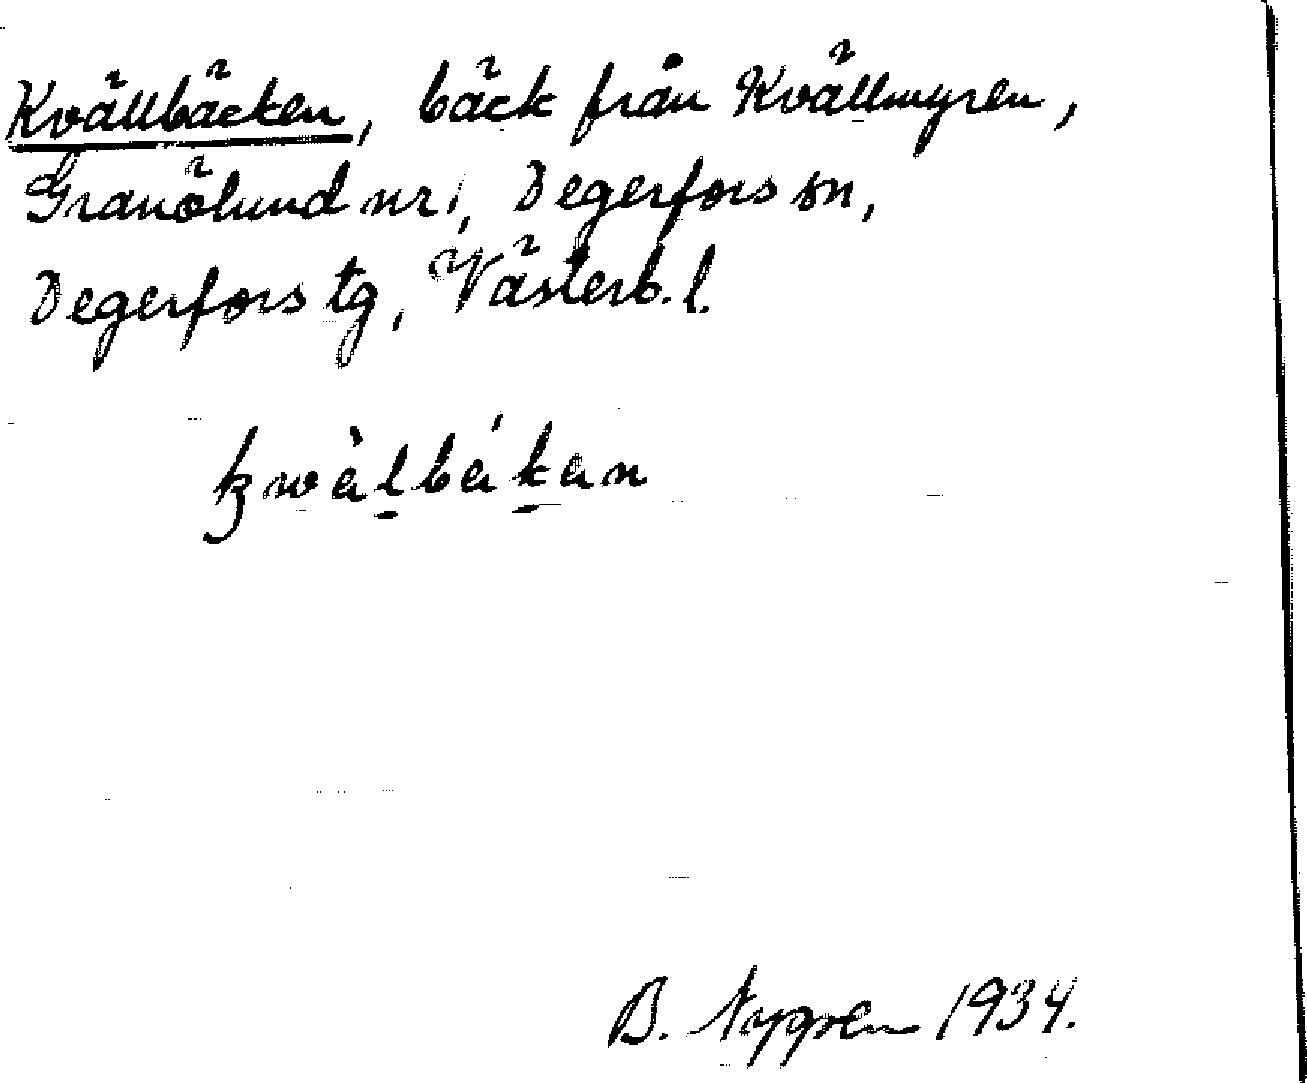 Kvällbäcken, bäck från Kvällmyren,
Granölund nr 1, Degerfors sn,
Degerfors tg, Västerb. l.
kwàlbákan
B. Nygren 1934.